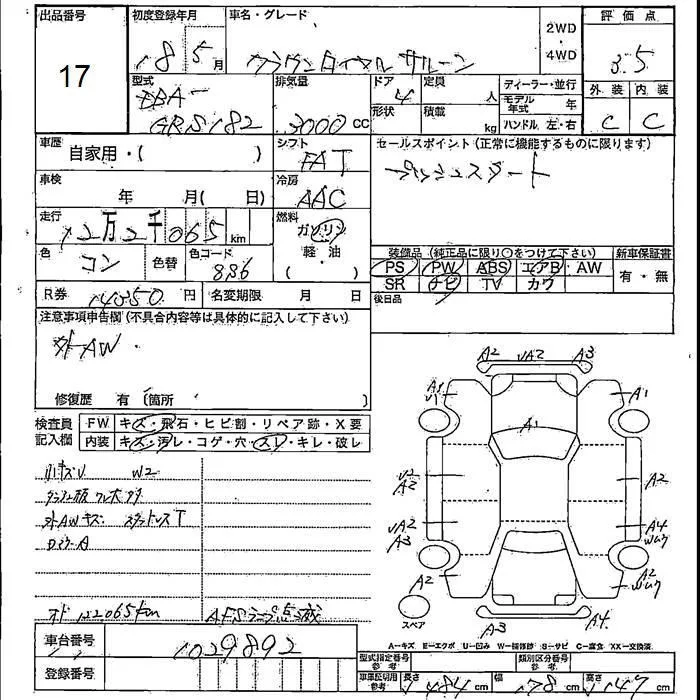 出品番号
17
初度登録年月
18 5月
車名・グレード
クラウンロイヤルサルーン
2WD
・
4WD
評価点
3.5
外装 内装
C C
型式
DBA-
GRS182
排気量
3000cc
ドア
4
定員
人
形状
積載
kg
ディーラー・並行
モデル年式 年
ハンドル 左・右
車歴
自家用・( )
シフト
FAT
セールスポイント(正常に機能するものに限ります)
プッシュスタート
車検
年 月( 日)
冷房
AAC
走行
12万2千065km
燃料
ガソリン
軽・油
・( )
色
コン
色替
色コード
8S6
装備品(純正品に限り○をつけて下さい)
PS PW ABS エアB AW
SR ナビ TV カワ
新車保証書
有・無
後日品
R券 14050円
名変期限 月 日
注意事項申告欄(不具合内容等は具体的に記入して下さい)
外AW
修復歴 有(箇所 )
検査員記入欄
FW キズ・飛石・ヒビ割・リペア跡・X要
内装 キズ・汚レ・コゲ・穴・スレ・キレ・破レ
小キズU W2
外AWキズ スタッドレスT
DミラーA
オド 122065km
AFSランプ点滅
車台番号
1029892
登録番号
A2 UA2 A3
A1
U1
A1
A1
U2
A2
A2
UA2
A3
A4
wau
A2
A2
wau
スペア
A3
A4
A=キズ E=エクボ U=凹み W=補修跡 S=サビ C=腐食 XX=交換済
型式指定番号
参考
類別区分番号
参考
車庫証明用
参考
長さ 484cm
幅 178cm
高さ 147cm